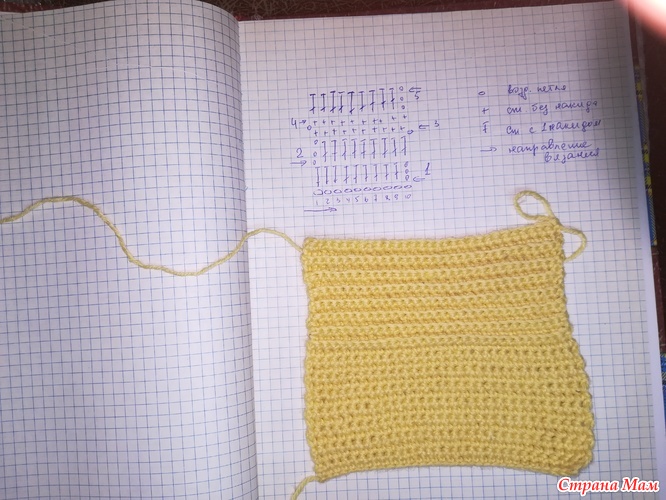 о возд. петля
+ ст. без накида
ст. с 1 накидом
→ направление
вязания
5
4 →
3
2
1
1 2 3 4 5 6 7 8 9 10
Страна Мам